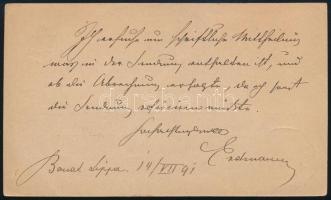 Ich ersuche um schriftliche Mittheilung
was in der Sendung enthalten ist, und
ob die Abrechnung erfolgt, da ich sonst
die Sendung
Hochachtungsvoll
Erdmann
Banat Lippa 14/VII 91